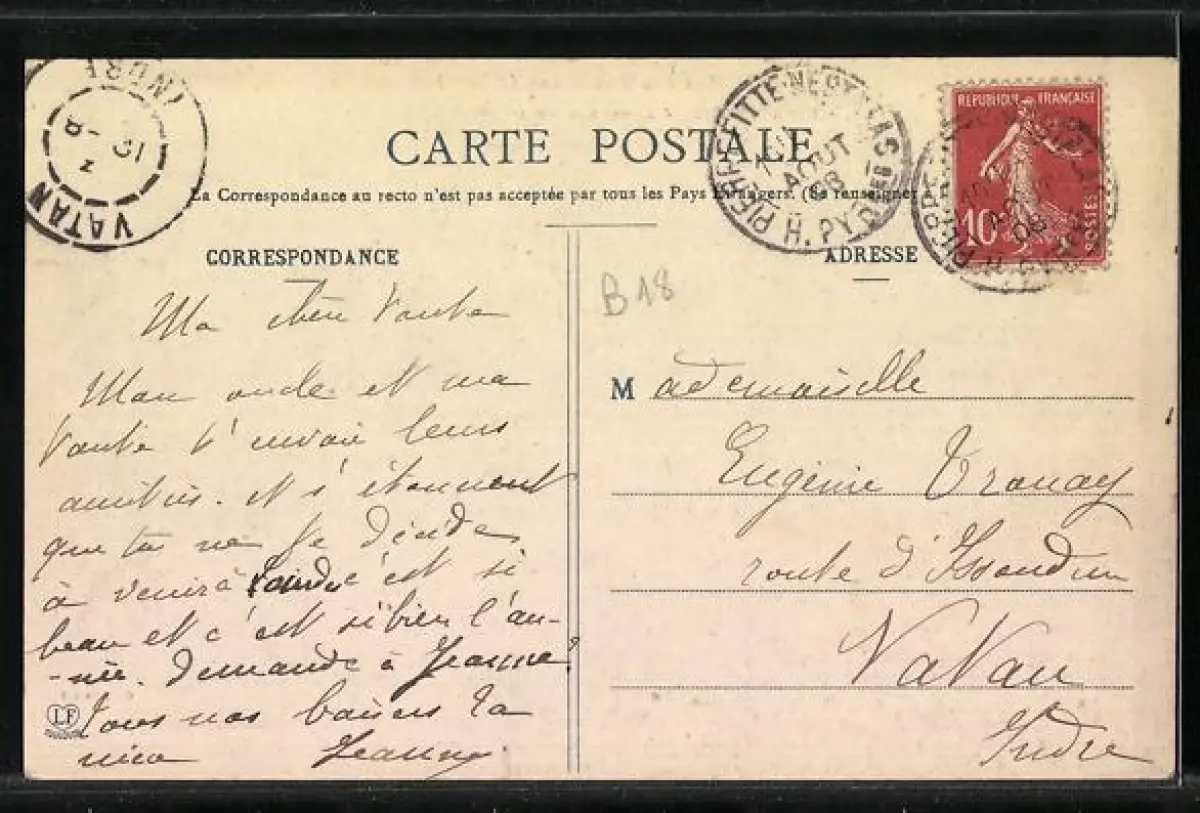 CARTE POSTALE
La Correspondance au recto n'est pas acceptée par tous les Pays Etrangers. (Se renseigner
PIERREFITTE-NESTALAS
AOUT
08
H. PYRÉNÉES
REPUBLIQUE FRANÇAISE
10
POSTES
VATAN
INDRE
CORRESPONDANCE
ADRESSE
B 18
Ma chère Tante
Mon oncle et ma
tante t'envoie leurs
amitiés. et s'étonnent
que tu ne te décide
à venir à c'est si
beau et c'est si bien l'an-
-née. demande à Jeanne
Tous nos baisers Ta
nièce Jeanne
LF
Mademoiselle
Eugénie
route d'Issoudun
Vatan
Indre